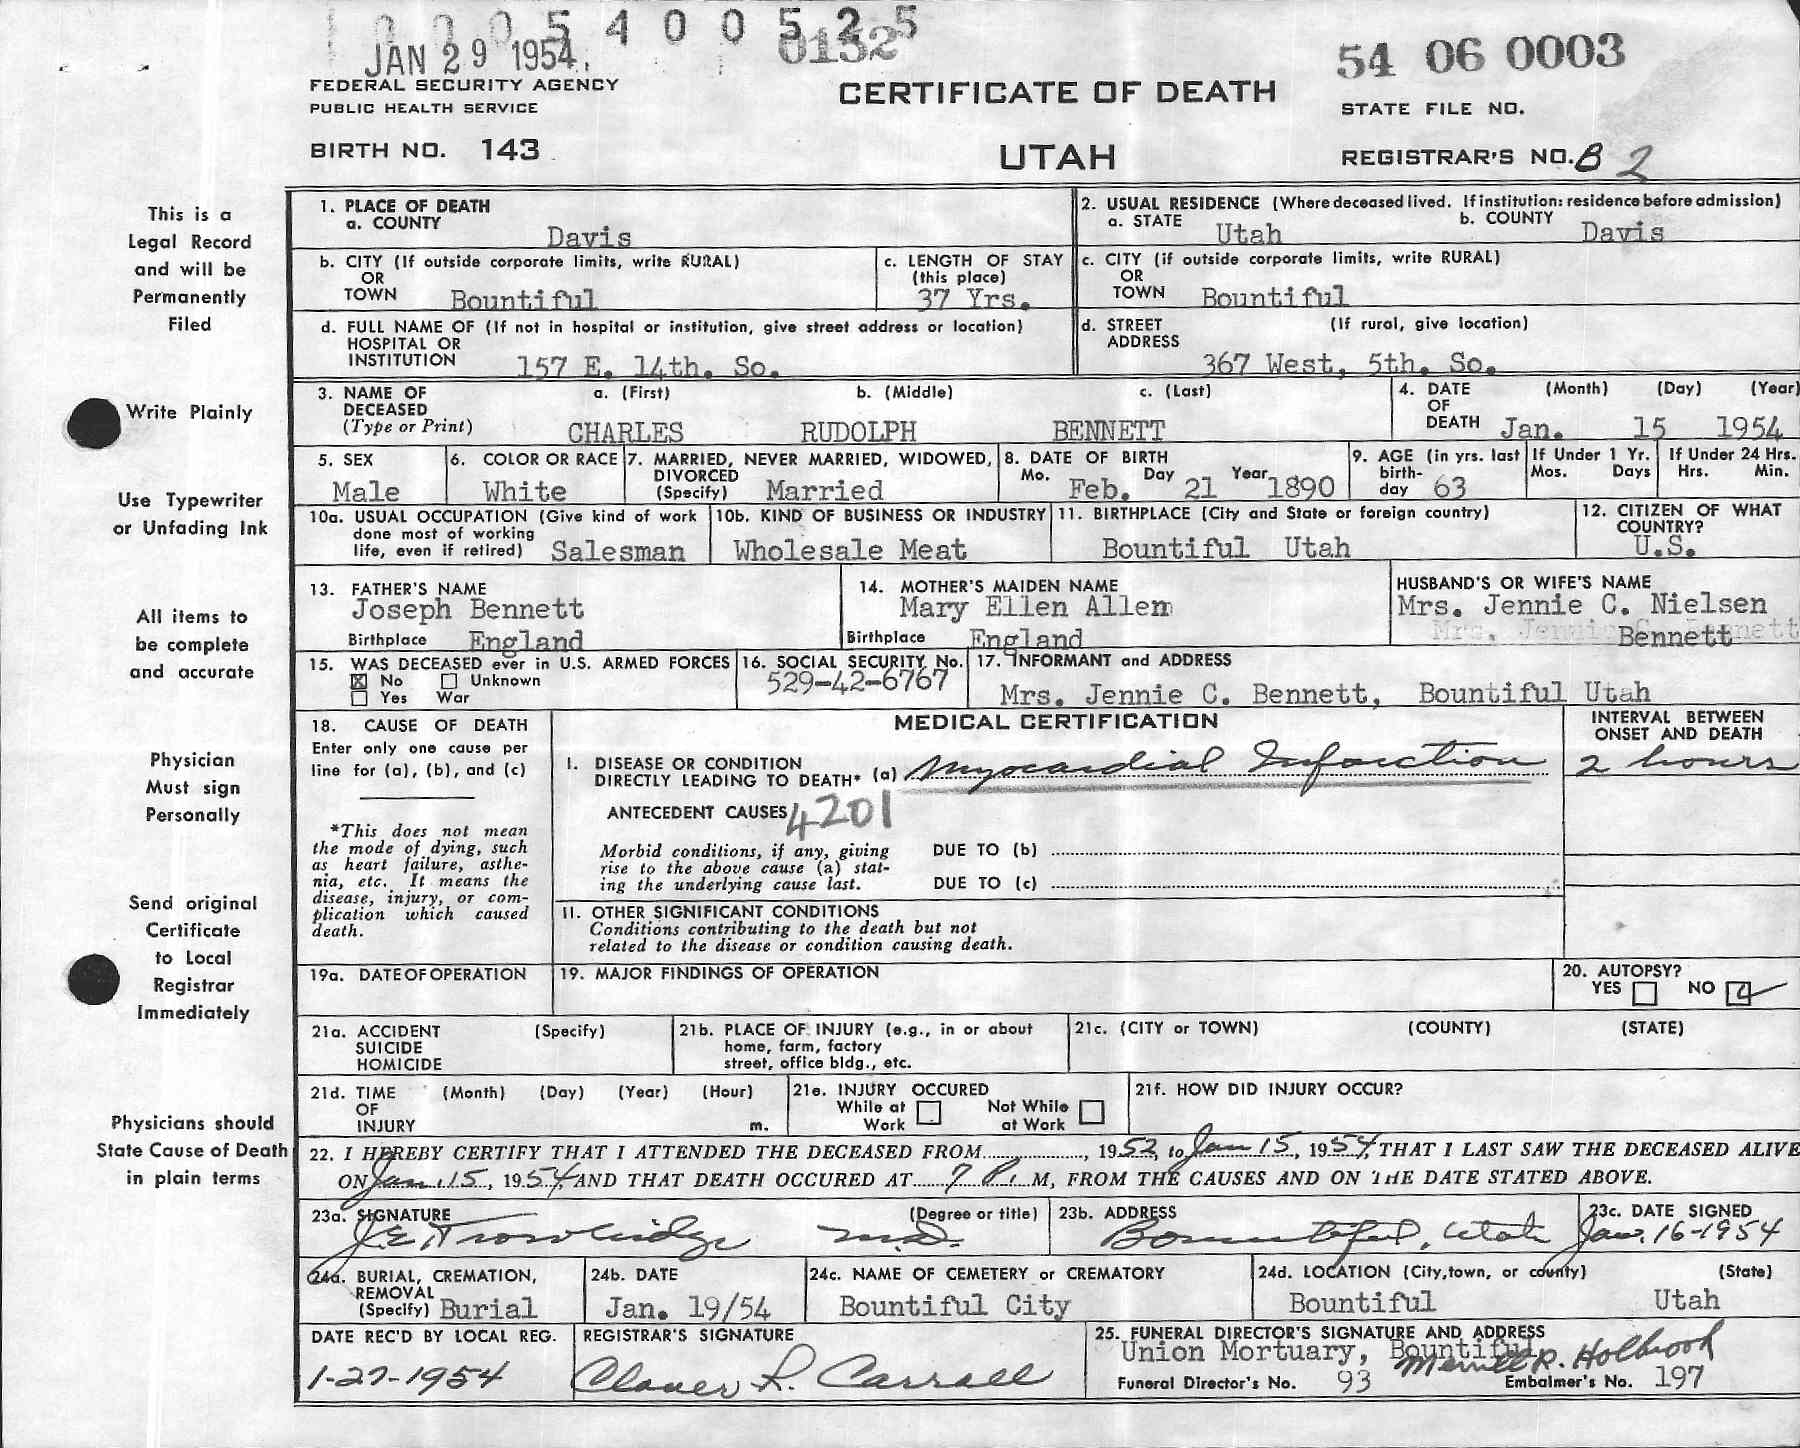 1 0 0 0 5 4 0 0 5 2 5
JAN 29 1954
0132
54 06 0003
FEDERAL SECURITY AGENCY
PUBLIC HEALTH SERVICE
CERTIFICATE OF DEATH
STATE FILE NO.
BIRTH NO. 143
UTAH
REGISTRAR'S NO. B 2
This is a
Legal Record
and will be
Permanently
Filed
Write Plainly
Use Typewriter
or Unfading Ink
All items to
be complete
and accurate
Physician
Must sign
Personally
Send original
Certificate
to Local
Registrar
Immediately
Physicians should
State Cause of Death
in plain terms
1. PLACE OF DEATH
a. COUNTY Davis
2. USUAL RESIDENCE (Where deceased lived. If institution: residence before admission)
a. STATE Utah b. COUNTY Davis
b. CITY (If outside corporate limits, write RURAL)
OR
TOWN Bountiful
c. LENGTH OF STAY
(this place)
37 Yrs.
c. CITY (if outside corporate limits, write RURAL)
OR
TOWN Bountiful
d. FULL NAME OF (If not in hospital or institution, give street address or location)
HOSPITAL OR
INSTITUTION 157 E. 14th. So.
d. STREET (If rural, give location)
ADDRESS
367 West, 5th. So.
3. NAME OF a. (First) b. (Middle) c. (Last)
DECEASED
(Type or Print) CHARLES RUDOLPH BENNETT
4. DATE (Month) (Day) (Year)
OF
DEATH Jan. 15 1954
5. SEX
Male
6. COLOR OR RACE
White
7. MARRIED, NEVER MARRIED, WIDOWED,
DIVORCED
(Specify) Married
8. DATE OF BIRTH
Mo. Feb. Day 21 Year 1890
9. AGE (in yrs. last
birth-
day 63
If Under 1 Yr.
Mos. Days
If Under 24 Hrs.
Hrs. Min.
10a. USUAL OCCUPATION (Give kind of work
done most of working
life, even if retired) Salesman
10b. KIND OF BUSINESS OR INDUSTRY
Wholesale Meat
11. BIRTHPLACE (City and State or foreign country)
Bountiful Utah
12. CITIZEN OF WHAT
COUNTRY?
U.S.
13. FATHER'S NAME
Joseph Bennett
Birthplace England
14. MOTHER'S MAIDEN NAME
Mary Ellen Allen
Birthplace England
HUSBAND'S OR WIFE'S NAME
Mrs. Jennie C. Nielsen
Bennett
15. WAS DECEASED ever in U.S. ARMED FORCES
☒ No ☐ Unknown
☐ Yes War
16. SOCIAL SECURITY No.
529-42-6767
17. INFORMANT and ADDRESS
Mrs. Jennie C. Bennett, Bountiful Utah
18. CAUSE OF DEATH
Enter only one cause per
line for (a), (b), and (c)
*This does not mean
the mode of dying, such
as heart failure, asthe-
nia, etc. It means the
disease, injury, or com-
plication which caused
death.
MEDICAL CERTIFICATION
INTERVAL BETWEEN
ONSET AND DEATH
I. DISEASE OR CONDITION
DIRECTLY LEADING TO DEATH* (a) Myocardial Infarction 2 hours
ANTECEDENT CAUSES 4201
Morbid conditions, if any, giving
rise to the above cause (a) stat-
ing the underlying cause last.
DUE TO (b)
DUE TO (c)
II. OTHER SIGNIFICANT CONDITIONS
Conditions contributing to the death but not
related to the disease or condition causing death.
19a. DATE OF OPERATION
19. MAJOR FINDINGS OF OPERATION
20. AUTOPSY?
YES ☐ NO ☑
21a. ACCIDENT (Specify)
SUICIDE
HOMICIDE
21b. PLACE OF INJURY (e.g., in or about
home, farm, factory
street, office bldg., etc.
21c. (CITY or TOWN) (COUNTY) (STATE)
21d. TIME (Month) (Day) (Year) (Hour)
OF
INJURY m.
21e. INJURY OCCURED
While at ☐ Not While ☐
Work at Work
21f. HOW DID INJURY OCCUR?
22. I HEREBY CERTIFY THAT I ATTENDED THE DECEASED FROM............, 1952, to Jan 15, 1954, THAT I LAST SAW THE DECEASED ALIVE
ON Jan. 15, 1954, AND THAT DEATH OCCURED AT 7 P. M, FROM THE CAUSES AND ON THE DATE STATED ABOVE.
23a. SIGNATURE (Degree or title)
J.E. Trowbridge M.D.
23b. ADDRESS
Bountiful, Utah
23c. DATE SIGNED
Jan. 16-1954
24a. BURIAL, CREMATION,
REMOVAL
(Specify) Burial
24b. DATE
Jan. 19/54
24c. NAME OF CEMETERY or CREMATORY
Bountiful City
24d. LOCATION (City, town, or county) (State)
Bountiful Utah
DATE REC'D BY LOCAL REG.
1-27-1954
REGISTRAR'S SIGNATURE
25. FUNERAL DIRECTOR'S SIGNATURE AND ADDRESS
Union Mortuary, Bountiful
Merrill R. Holbrook
Funeral Director's No. 93 Embalmer's No. 197